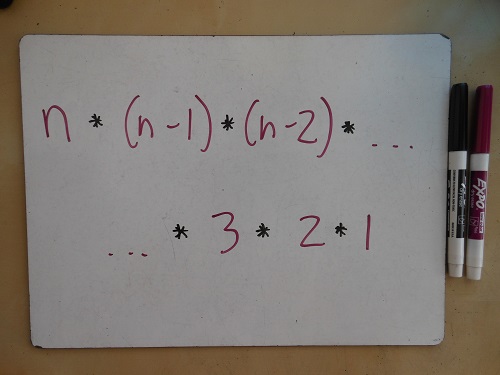 n * (n-1) * (n-2) * ...
... * 3 * 2 * 1
EXPO